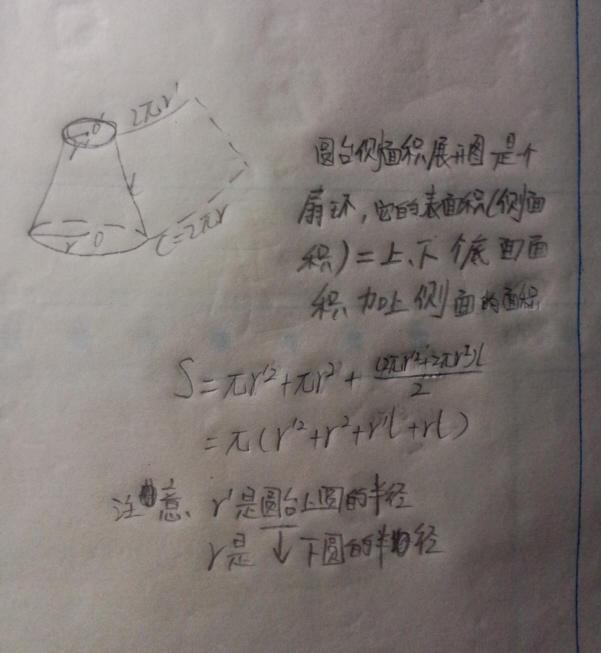 2πr'
O'
l
r O
C=2πr
圆台侧面积展开图是个
扇环,它的表面积(侧面
积)=上、下个底面面
积加上侧面的面积
S=πr'²+πr²+(2πr'²+2πr²)l/2
=π(r'²+r²+r'l+rl)
注意、r'是圆台上圆的半径
r是↓下圆的半径